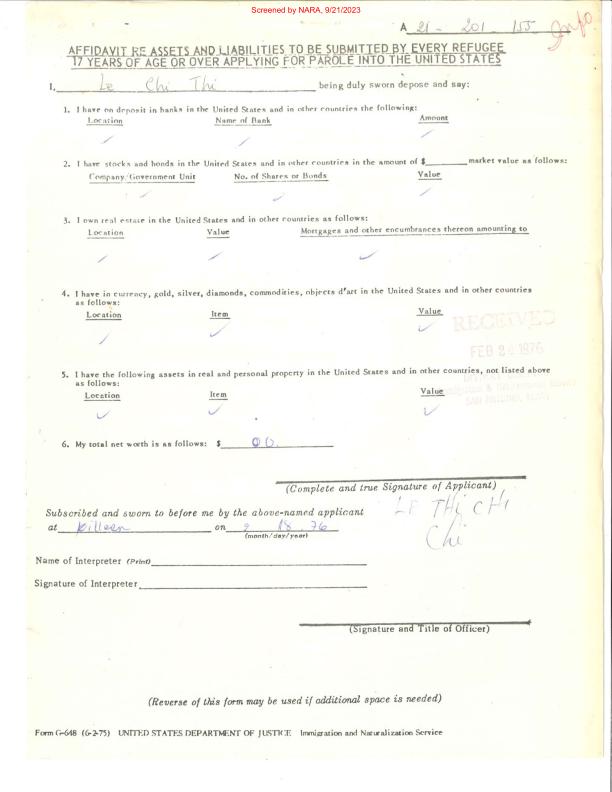 Screened by NARA, 9/21/2023
A 21 - 201 - 155 Info
AFFIDAVIT RE ASSETS AND LIABILITIES TO BE SUBMITTED BY EVERY REFUGEE
17 YEARS OF AGE OR OVER APPLYING FOR PAROLE INTO THE UNITED STATES
I, Le Chi Thi being duly sworn depose and say:
1. I have on deposit in banks in the United States and in other countries the following:
Location Name of Bank Amount
2. I have stocks and bonds in the United States and in other countries in the amount of $ market value as follows:
Company/Government Unit No. of Shares or Bonds Value
3. I own real estate in the United States and in other countries as follows:
Location Value Mortgages and other encumbrances thereon amounting to
4. I have in currency, gold, silver, diamonds, commodities, objects d'art in the United States and in other countries
as follows:
Location Item Value
RECEIVED
FEB 24 1976
5. I have the following assets in real and personal property in the United States and in other countries, not listed above
as follows:
Location Item Value
SAN ANTONIO, TEXAS
6. My total net worth is as follows: $ 00.
(Complete and true Signature of Applicant)
LE THI CHI
Chi
Subscribed and sworn to before me by the above-named applicant
at killeen on 2 18 . 76
(month/day/year)
Name of Interpreter (Print)
Signature of Interpreter
(Signature and Title of Officer)
(Reverse of this form may be used if additional space is needed)
Form G-648 (6-2-75) UNITED STATES DEPARTMENT OF JUSTICE Immigration and Naturalization Service